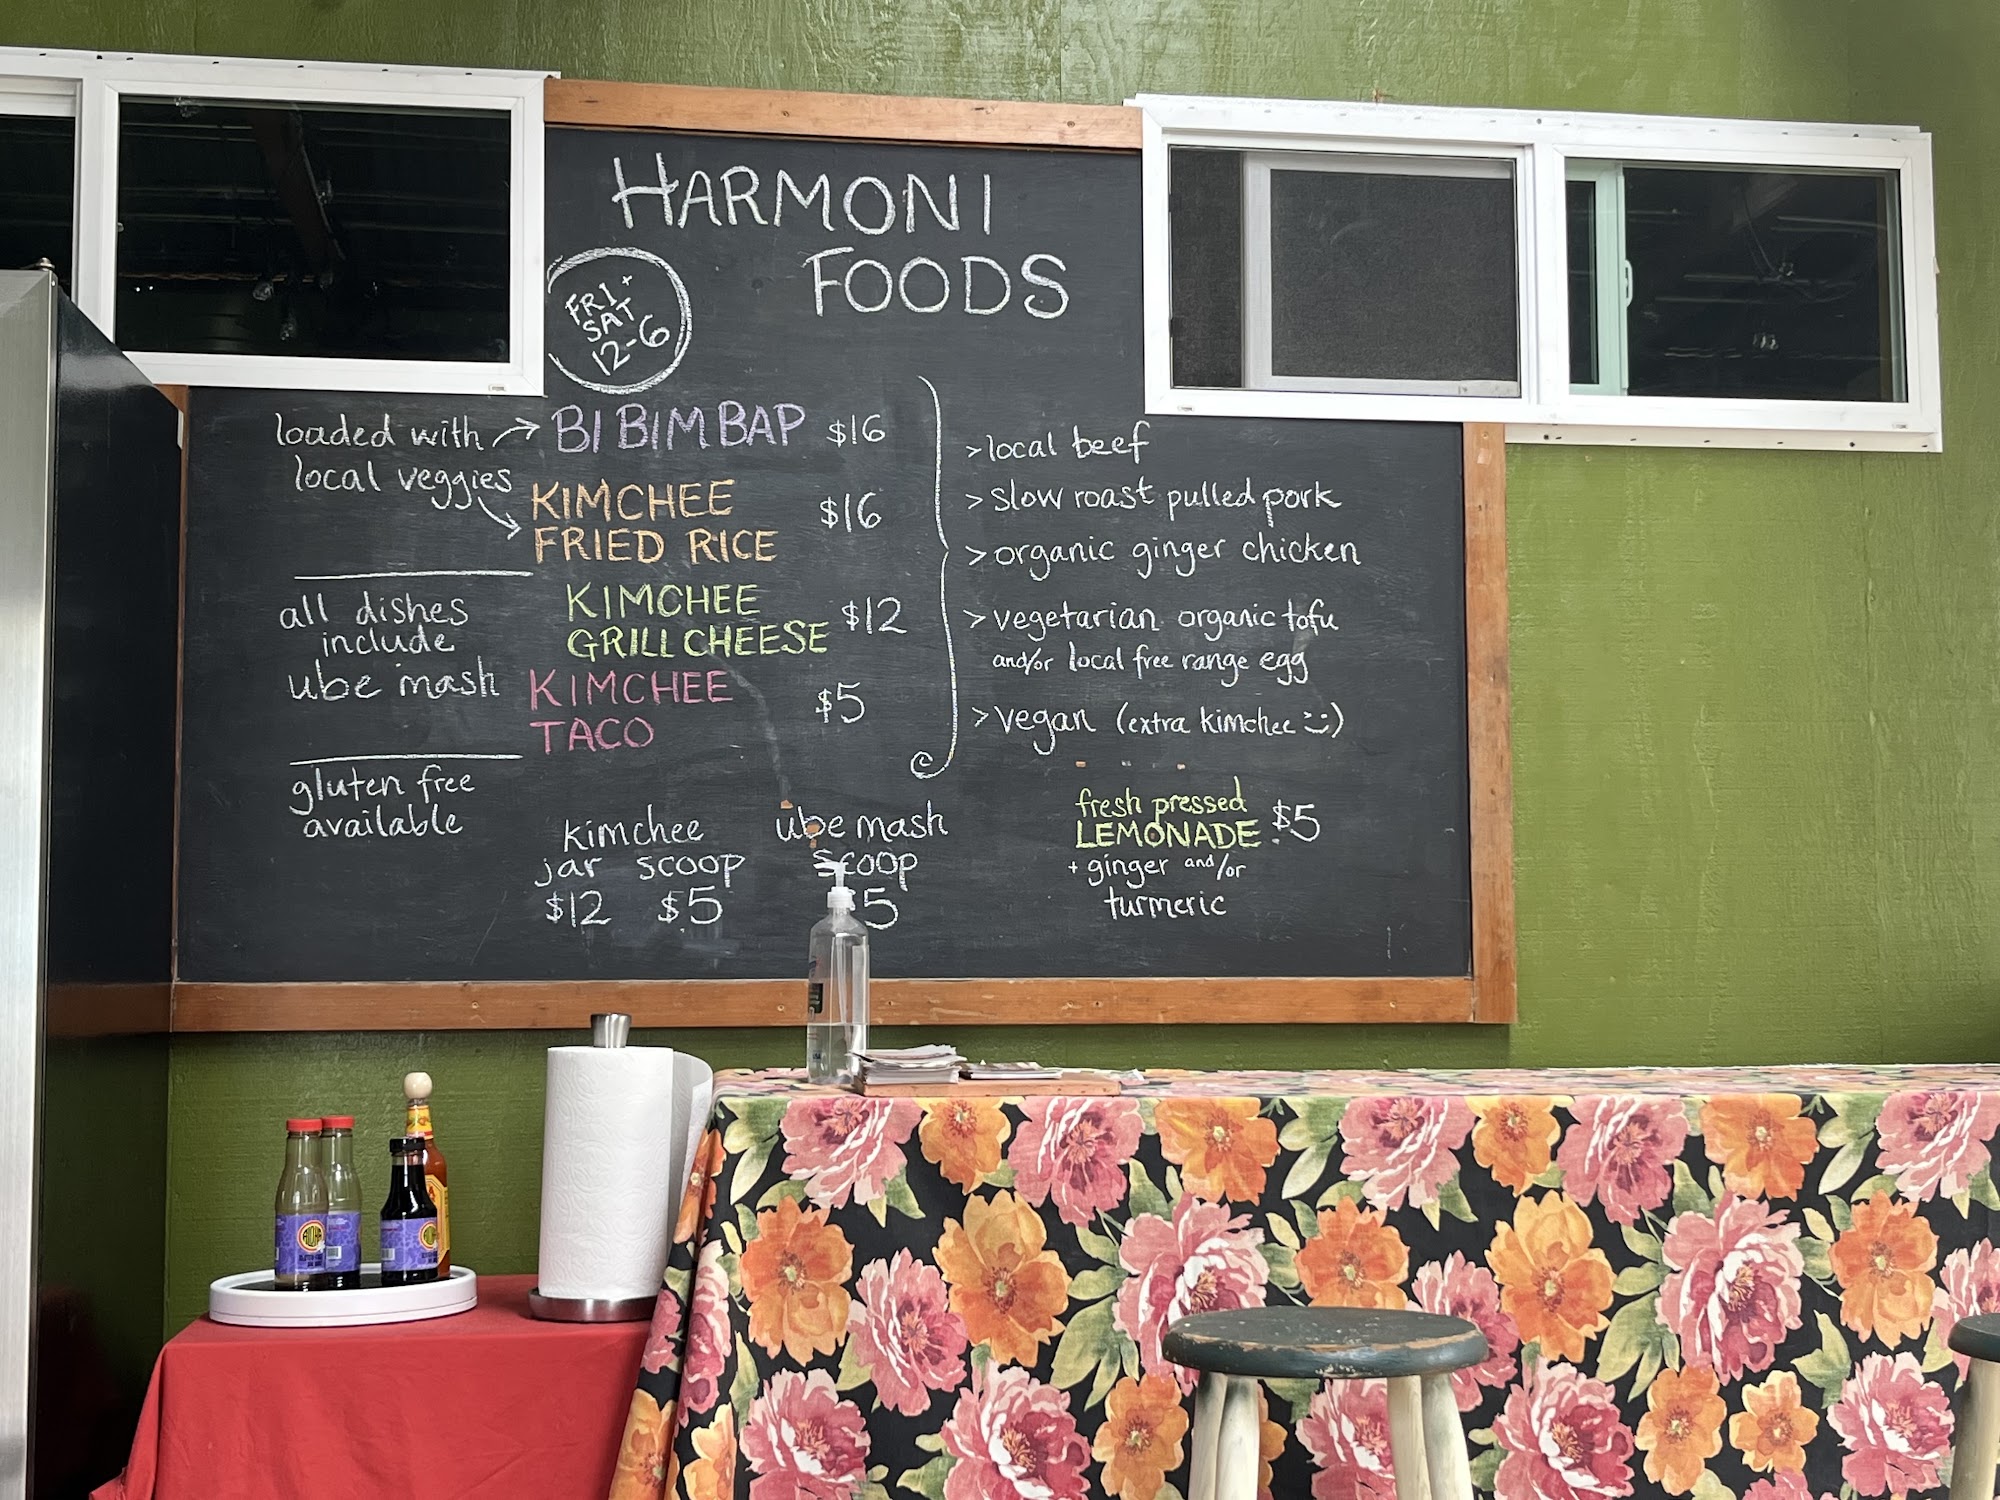 HARMONI
FOODS
FRI +
SAT
12-6
loaded with
local veggies
BIBIMBAP $16
KIMCHEE
FRIED RICE $16
all dishes
include
ube mash
KIMCHEE
GRILL CHEESE $12
KIMCHEE
TACO $5
gluten free
available
> local beef
> slow roast pulled pork
> organic ginger chicken
> vegetarian organic tofu
and/or local free range egg
> vegan (extra kimchee :))
kimchee
jar scoop
$12 $5
ube mash
scoop
5
fresh pressed
LEMONADE $5
+ ginger and/or
turmeric
ALOHA